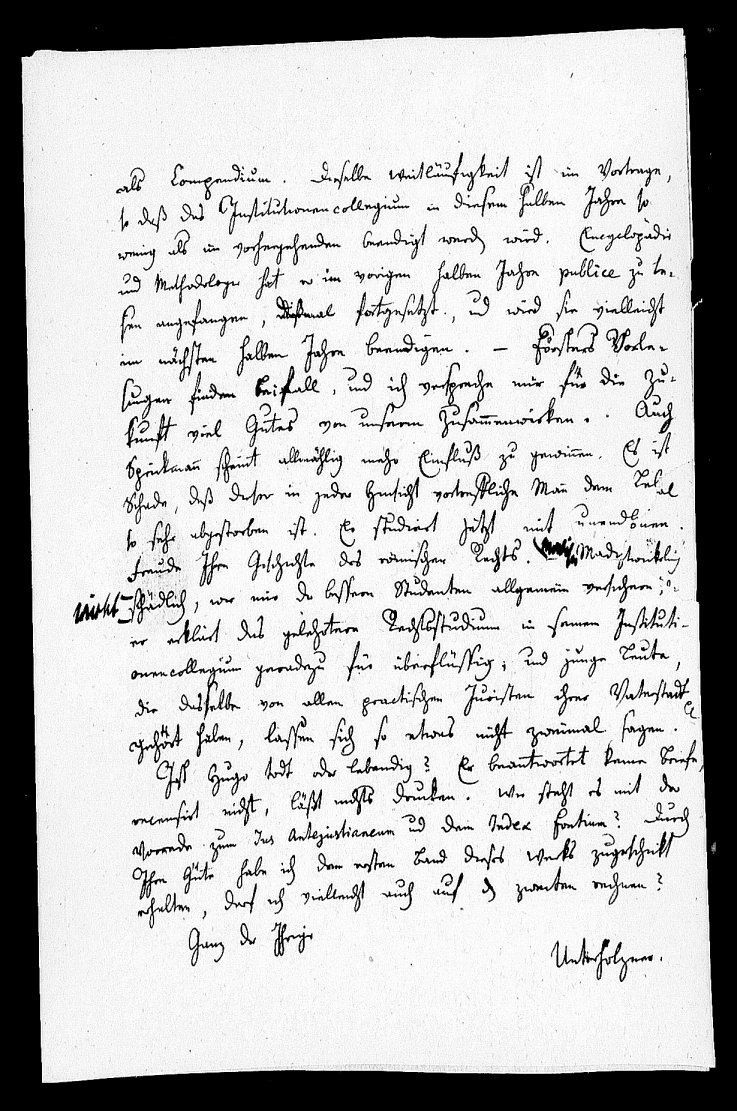 als Compendium. Dieselbe Weitläufigkeit ist im Vortrage,
so daß das Institutionencollegium in diesem halben Jahre so
wenig als im vorhergehenden beendigt werd wird. Encyclopädie
und Methodologie hat er im vorigen halben Jahre publice zu le-
sen angefangen, dißmal fortgesetzt, ud wird sie vielleicht
im nächsten halben Jahre beendigen. — Försters Vorle-
sungen finden Beifall, und ich verspreche mir für die Zu-
kunft viel Gutes von unserm Zusam̅enwirken. Auch
Sprickman̅ scheint allmählig mehr Einfluß zu gewin̅en. Es ist
Schade, daß dieser in jeder Hinsicht vortreffliche Man̅ dem
so sehr abgestorben ist. Er studiert jetzt mit
Freude Ihre Geschichte des römischen Rechts. Madihn wirkt
nicht schädlich, wie mir die bessern Studenten allgemein versichern;
er erklärt das gelehrtere Rechtsstudium in seinem Instituti-
onencollegium geradezu für überflüssig; und junge Leute,
die dasselbe von allen practischen Juristen ihrer Vaterstadt
gehört haben, lassen sich so etwas nicht zweimal sagen.
Ist Hugo todt oder lebendig? Er beantwortet keine Briefe,
recensirt nicht, läßt nichts drucken. Wie steht es mit der
Vorrede zum Jus Antejustianeum ud dem Index fontium? Durch
Ihre Güte habe ich den ersten Band dieses Werks zugeschickt
erhalten, darf ich vielleicht auch auf d zweiten rechnen?
Ganz der Ihrige
Unterholzner.